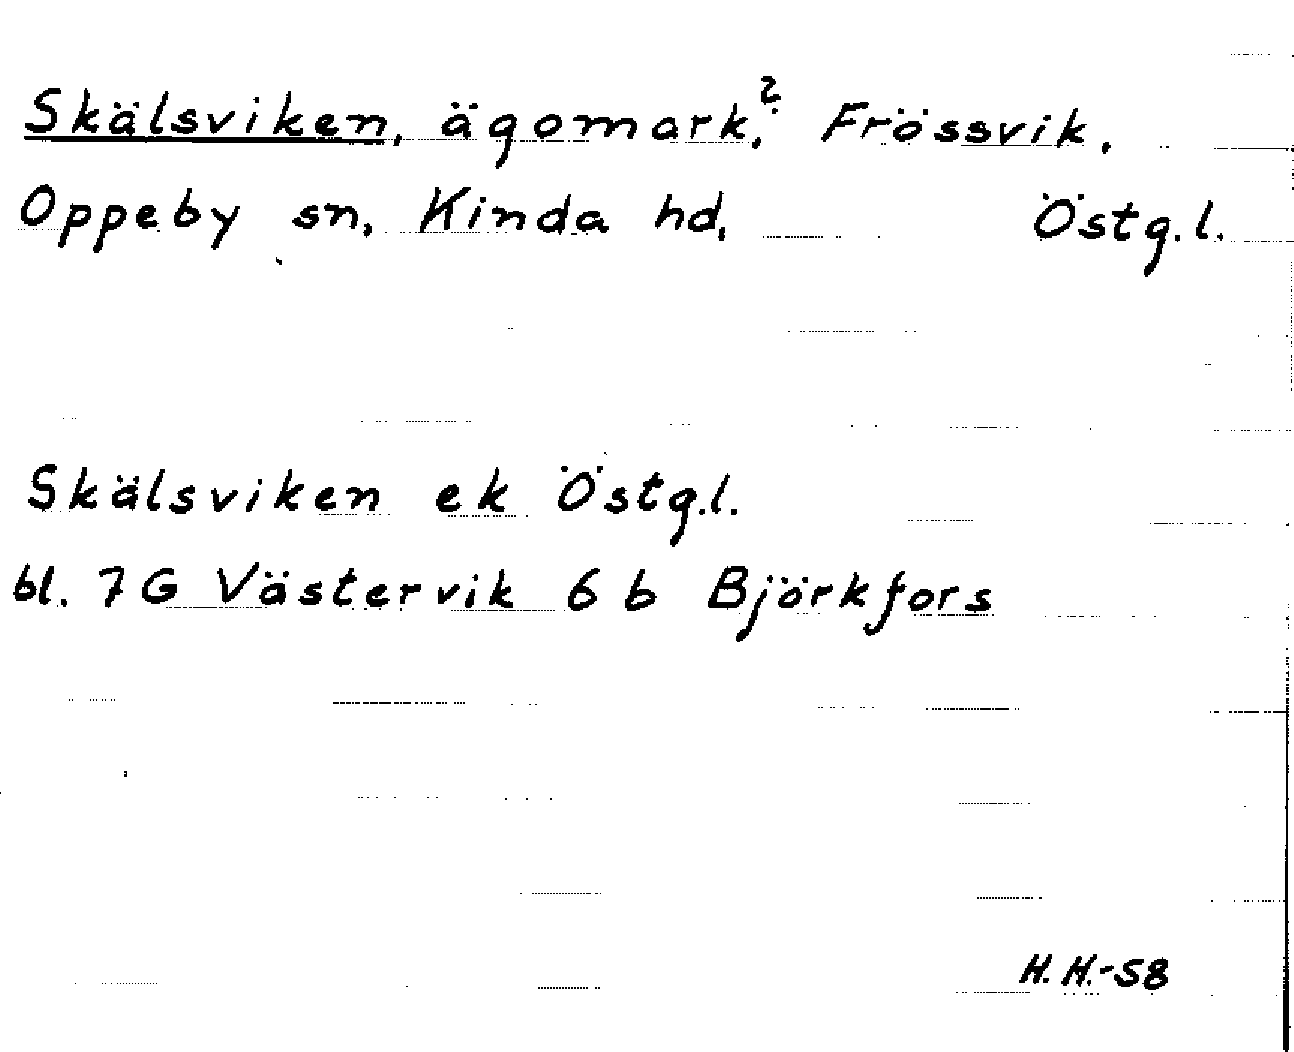 Skälsviken, ägomark,? Frössvik.
Oppeby sn, Kinda hd, Östg.l.
Skälsviken ek Östg.l.
bl. 7G Västervik 6 b Björkfors
H.H.-58